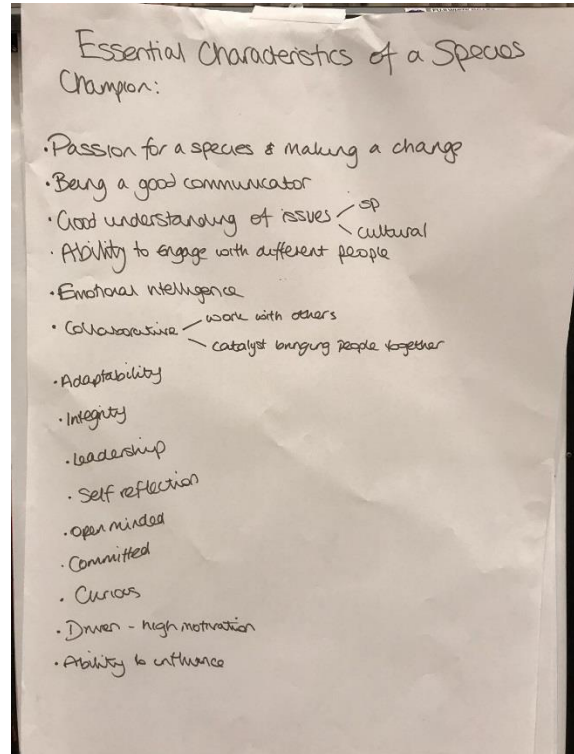 Essential Characteristics of a Species
Champion:
• Passion for a species & making a change
• Being a good communicator
• Good understanding of issues sp
cultural
• Ability to engage with different people
• Emotional intelligence
• Collaborative work with others
catalyst bringing people together
• Adaptability
• Integrity
• Leadership
• Self reflection
• Open minded
• Committed
• Curious
• Driven - high motivation
• Ability to influence